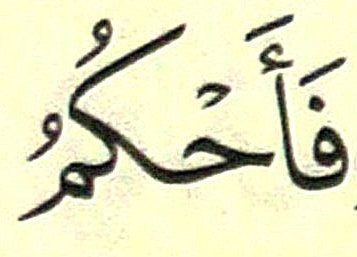 فَأَحْكُمُ